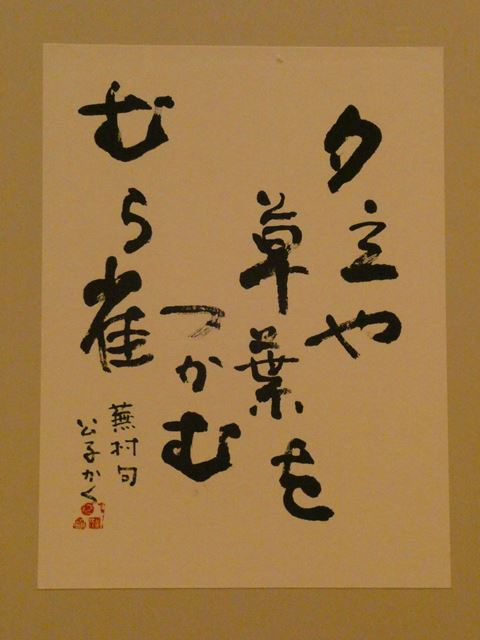 夕立や
草葉を
つかむ
むら雀
蕪村句
公子かく